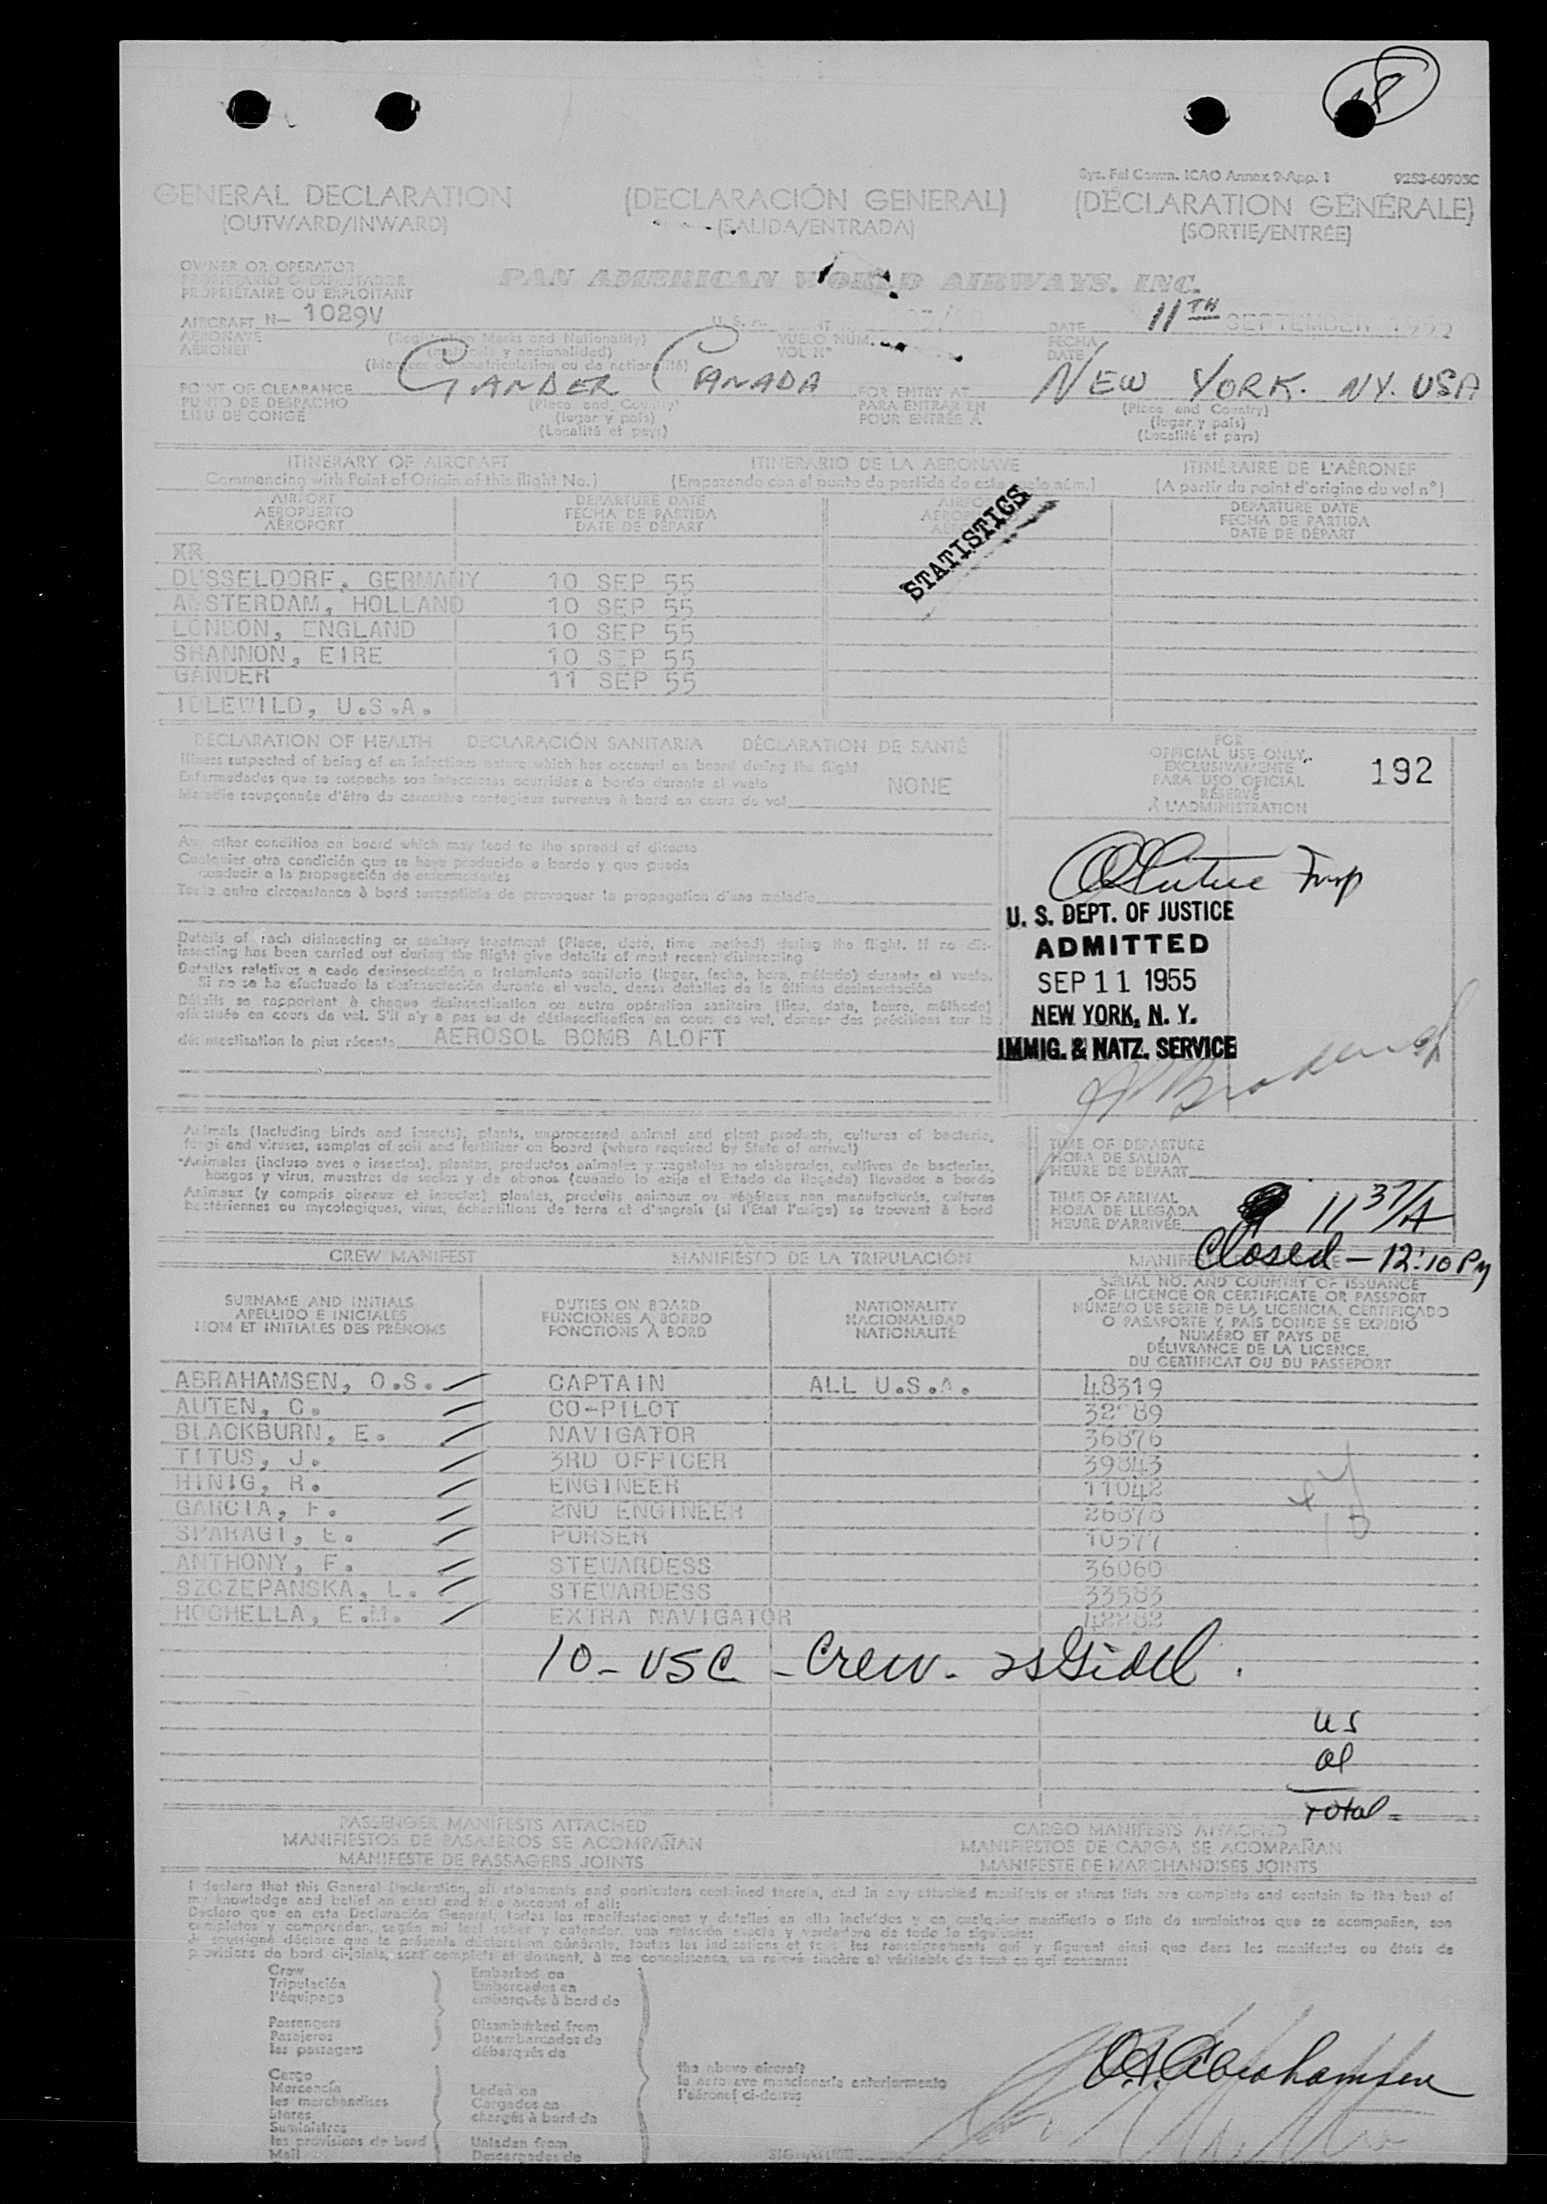 18
Sys. Fal Comm. ICAO Annex 9-App. 1 9253-60905C
GENERAL DECLARATION (DECLARACIÓN GENERAL) (DÉCLARATION GÉNÉRALE)
(OUTWARD/INWARD) (SALIDA/ENTRADA) (SORTIE/ENTRÉE)
OWNER OR OPERATOR
PROPIETARIO O EXPLOTADOR PAN AMERICAN WORLD AIRWAYS, INC.
PROPRIÉTAIRE OU EXPLOITANT
AIRCRAFT N- 1029V U.S.A. DATE 11TH SEPTEMBER 1955
AERONAVE (Registration Marks and Nationality) VUELO NÚM. FECHA
AÉRONEF (matrícula y nacionalidad) VOL Nº DATE
(Marques d'immatriculation ou de nationalité)
POINT OF CLEARANCE GANDER CANADA FOR ENTRY AT NEW YORK. NY. USA
PUNTO DE DESPACHO (Place and Country) PARA ENTRAR EN (Place and Country)
LIEU DE CONGÉ (lugar y país) POUR ENTRÉE À (lugar y país)
(Localité et pays) (Localité et pays)
ITINERARY OF AIRCRAFT ITINERARIO DE LA AERONAVE ITINÉRAIRE DE L'AÉRONEF
Commencing with Point of Origin of this flight No.) (Empezando con el punto de partida de este vuelo núm.) (A partir du point d'origine du vol nº)
AIRPORT DEPARTURE DATE DEPARTURE DATE
AEROPUERTO FECHA DE PARTIDA FECHA DE PARTIDA
AÉROPORT DATE DE DÉPART DATE DE DÉPART
STATISTICS
DUSSELDORF, GERMANY 10 SEP 55
AMSTERDAM, HOLLAND 10 SEP 55
LONDON, ENGLAND 10 SEP 55
SHANNON, EIRE 10 SEP 55
GANDER 11 SEP 55
IDLEWILD, U.S.A.
DECLARATION OF HEALTH DECLARACIÓN SANITARIA DÉCLARATION DE SANTÉ
Illness suspected of being of an infectious nature which has occurred on board during the flight
Enfermedades que se sospecha son infecciosas ocurridas a bordo durante el vuelo
Maladie soupçonnée d'être de caractère contagieux survenue à bord en cours de vol NONE
FOR
OFFICIAL USE ONLY
EXCLUSIVAMENTE
PARA USO OFICIAL
RÉSERVÉ
À L'ADMINISTRATION
192
Any other condition on board which may lead to the spread of disease
Cualquier otra condición que se haya producido a bordo y que pueda
conducir a la propagación de enfermedades
Toute autre circonstance à bord susceptible de provoquer la propagation d'une maladie
U. S. DEPT. OF JUSTICE
ADMITTED
SEP 11 1955
NEW YORK, N. Y.
IMMIG. & NATZ. SERVICE
Details of each disinsecting or sanitary treatment (Place, date, time method) during the flight. If no dis-
insecting has been carried out during the flight give details of most recent disinsecting
Detalles relativos a cada desinsectación o tratamiento sanitario (lugar, fecha, hora, método) durante el vuelo.
Si no se ha efectuado la desinsectación durante el vuelo, dense detalles de la última desinsectación
Détails se rapportant à chaque désinsectisation ou autre opération sanitaire (lieu, date, heure, méthode)
effectuée en cours de vol. S'il n'y a pas eu de désinsectisation en cours de vol, donner des précisions sur la
désinsectisation la plus récente AEROSOL BOMB ALOFT
Animals (Including birds and insects), plants, unprocessed animal and plant products, cultures of bacteria,
fungi and viruses, samples of soil and fertilizer on board (where required by State of arrival)
Animales (incluso aves e insectos), plantas, productos animales y vegetales no elaborados, cultivos de bacterias,
hongos y virus, muestras de suelos y de abonos (cuando lo exija el Estado de llegada) llevados a bordo
Animaux (y compris oiseaux et insectes) plantes, produits animaux ou végétaux non manufacturés, cultures
bactériennes ou mycologiques, virus, échantillons de terre et d'engrais (si l'État l'exige) se trouvant à bord
TIME OF DEPARTURE
HORA DE SALIDA
HEURE DE DÉPART
TIME OF ARRIVAL
HORA DE LLEGADA
HEURE D'ARRIVÉE 11 37/A
Closed - 12:10 PM
CREW MANIFEST MANIFIESTO DE LA TRIPULACIÓN
SURNAME AND INITIALS DUTIES ON BOARD NATIONALITY
APELLIDO E INICIALES FUNCIONES A BORDO NACIONALIDAD
NOM ET INITIALES DES PRÉNOMS FONCTIONS À BORD NATIONALITÉ
SERIAL NO. AND COUNTRY OF ISSUANCE
OF LICENCE OR CERTIFICATE OR PASSPORT
NÚMERO DE SERIE DE LA LICENCIA, CERTIFICADO
O PASAPORTE Y PAÍS DONDE SE EXPIDIÓ
NUMÉRO ET PAYS DE
DÉLIVRANCE DE LA LICENCE,
DU CERTIFICAT OU DU PASSEPORT
ABRAHAMSEN, O.S. CAPTAIN ALL U.S.A. 48319
AUTEN, C. CO-PILOT
BLACKBURN, E. NAVIGATOR 36876
TITUS, J. 3RD OFFICER 39843
HINIG, R. ENGINEER 11042
GARCIA, F. 2ND ENGINEER 26878
SPARAGI, E. PURSER 10577
ANTHONY, F. STEWARDESS 36060
SZCZEPANSKA, L. STEWARDESS 33583
HOCHELLA, E.M. EXTRA NAVIGATOR 42282
10 - USC - Crew -
US
al
Total =
PASSENGER MANIFESTS ATTACHED CARGO MANIFESTS ATTACHED
MANIFIESTOS DE PASAJEROS SE ACOMPAÑAN MANIFIESTOS DE CARGA SE ACOMPAÑAN
MANIFESTE DE PASSAGERS JOINTS MANIFESTE DE MARCHANDISES JOINTS
I declare that this General Declaration, all statements and particulars contained therein, and in any attached manifests or stores lists are complete and contain to the best of
my knowledge and belief an exact and true account of all:
Declaro que en esta Declaración General, todas las manifestaciones y detalles en ella incluidos y en cualquier manifiesto o lista de suministros que se acompañen, son
completos y comprenden, según mi leal saber y entender, una relación exacta y verdadera de todo lo siguiente:
Je soussigné déclare que la présente déclaration générale, toutes les indications et tous les renseignements qui y figurent ainsi que dans les manifestes ou états de
provisions de bord ci-joints, sont complets et donnent, à ma connaissance, un relevé sincère et véritable de tout ce qui concerne:
Crew Embarked on
Tripulación Embarcados en
l'équipage embarqués à bord de
Passengers Disembarked from
Pasajeros Desembarcados de
les passagers débarqués de
Cargo the above aircraft
Mercancía Laden on la aeronave mencionada anteriormente
les marchandises Cargados en l'aéronef ci-dessus
Stores chargés à bord de
Suministros
les provisions de bord Unladen from
Mail Descargados de
O.S. Abrahamsen
SIGNATURE